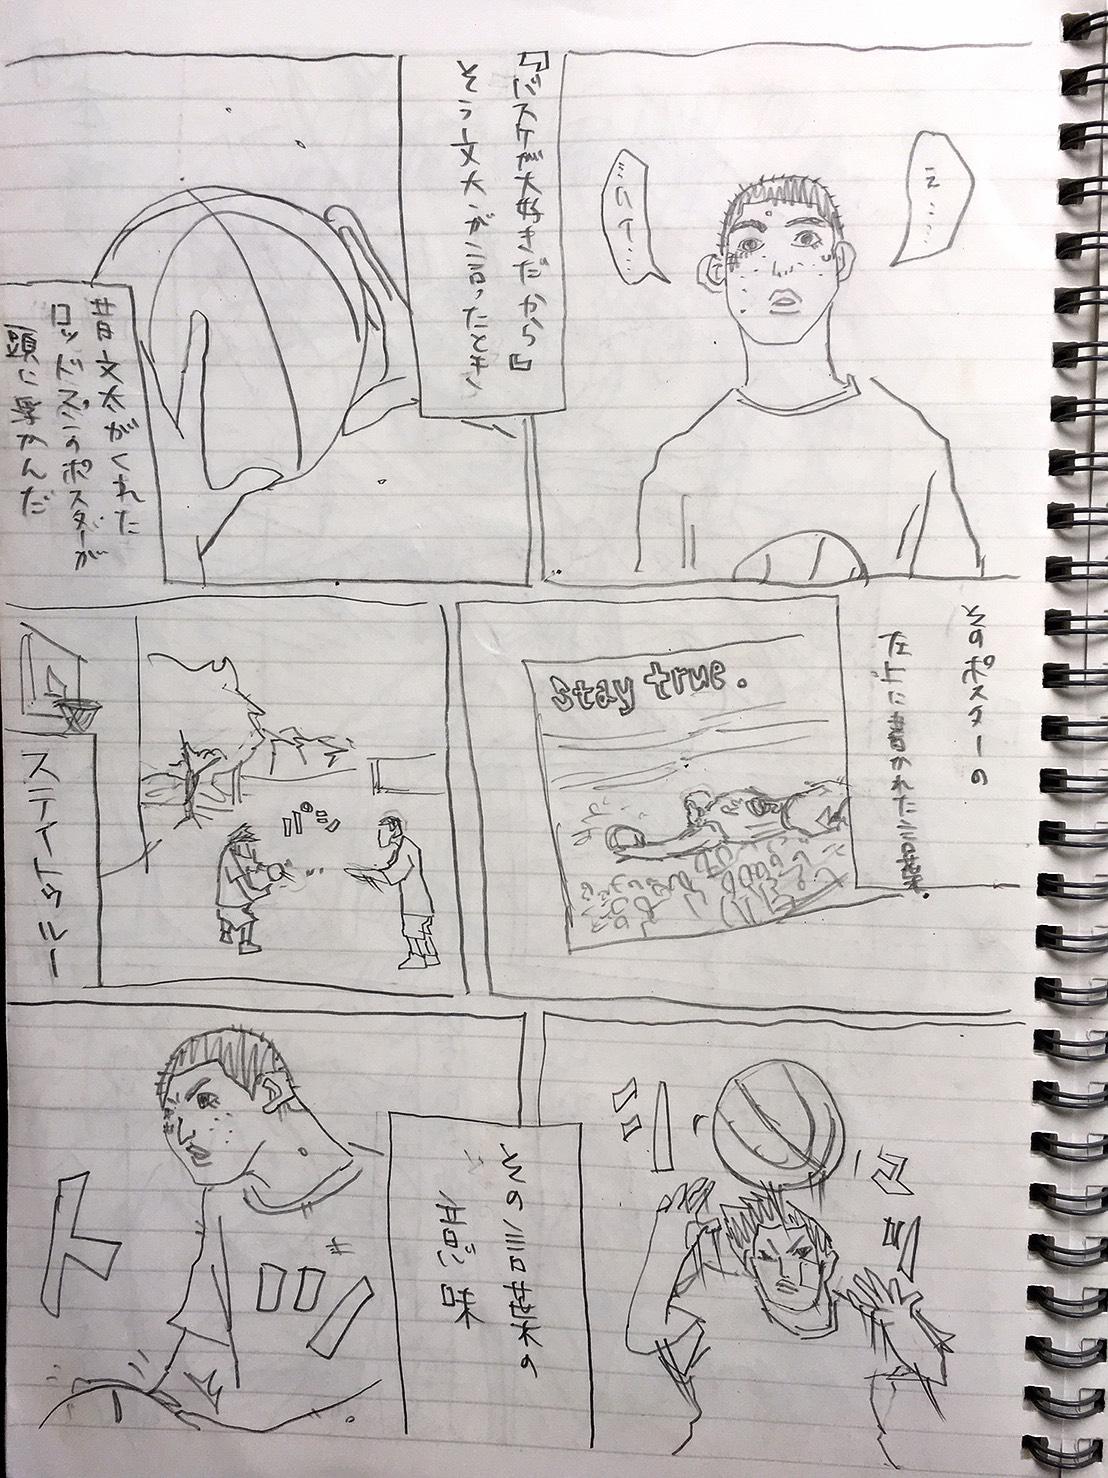 え……
…ハイ…
『バスケが大好きだから』
そう文太が言ったとき
昔文太がくれた
ロッドマンのポスターが
頭に浮かんだ
そのポスターの
左上に書かれた言葉.
Stay true.
パシ
ステイトゥルー
その言葉の
意味
ト